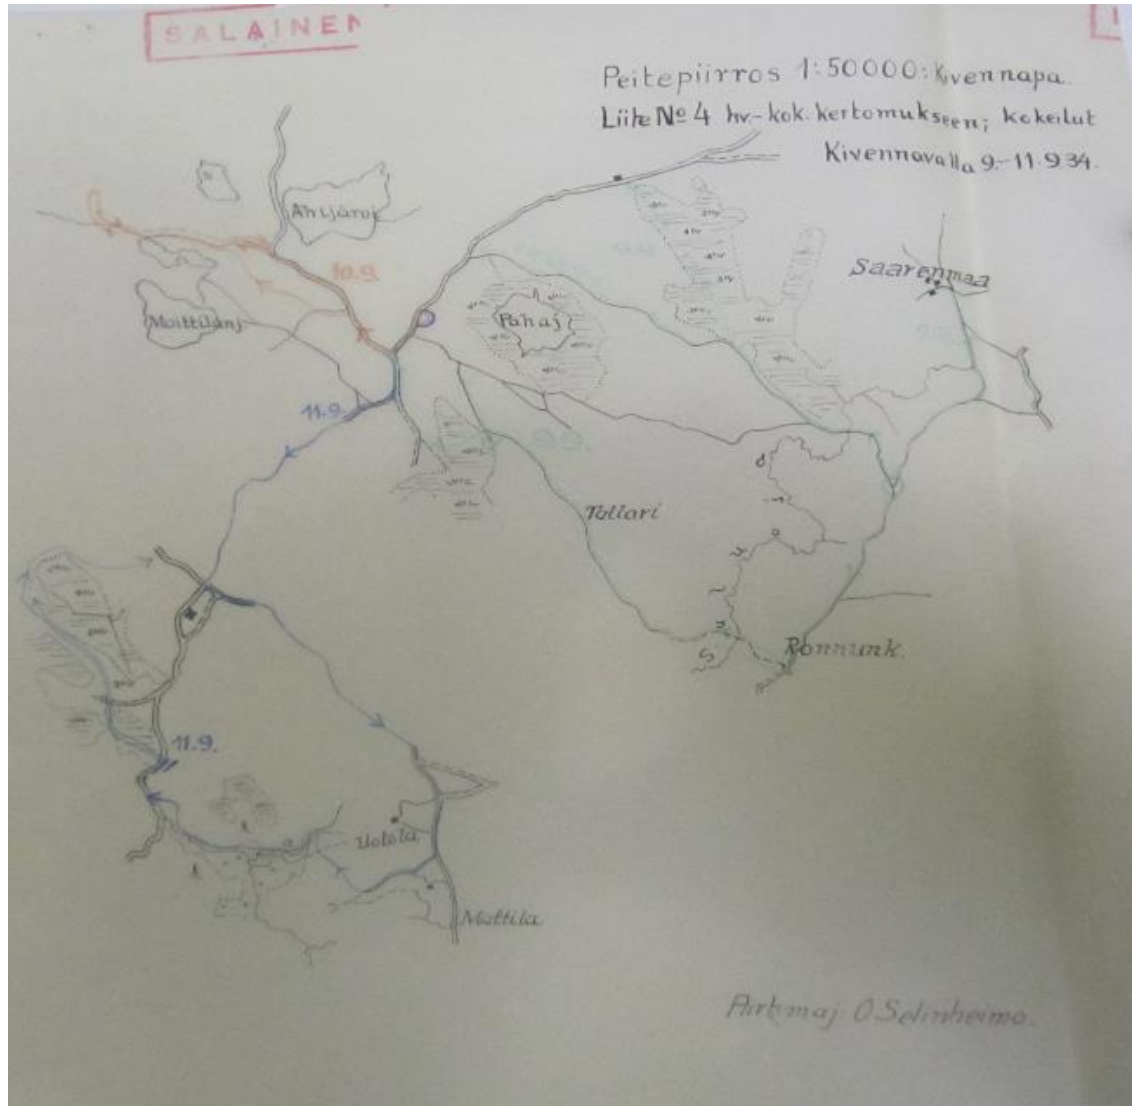 SALAINEN
Peitepiirros 1:50000: Kivennapa.
Liite No 4 hv-kok. kertomukseen; kokeilut
Kivennavalla 9-11.9.34.
Ahijärvi
10.9.
Saarenmaa
Moittilanj
Pahaj
11.9.
9.9.
Tollari
Suulajoki
Ronnunk.
11.9.
Uotola
Mattila
O Selinheimo.